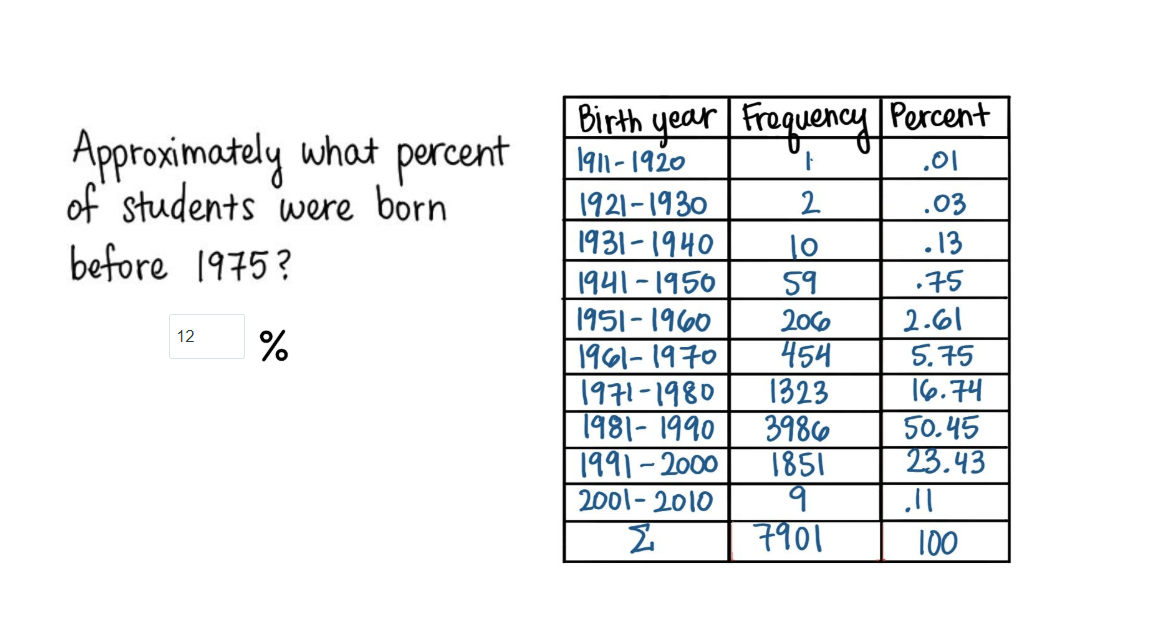 Approximately what percent
of students were born
before 1975?
12 %
Birth year Frequency Percent
1911-1920 1 .01
1921-1930 2 .03
1931-1940 10 .13
1941-1950 59 .75
1951-1960 206 2.61
1961-1970 454 5.75
1971-1980 1323 16.74
1981-1990 3986 50.45
1991-2000 1851 23.43
2001-2010 9 .11
Σ 7901 100